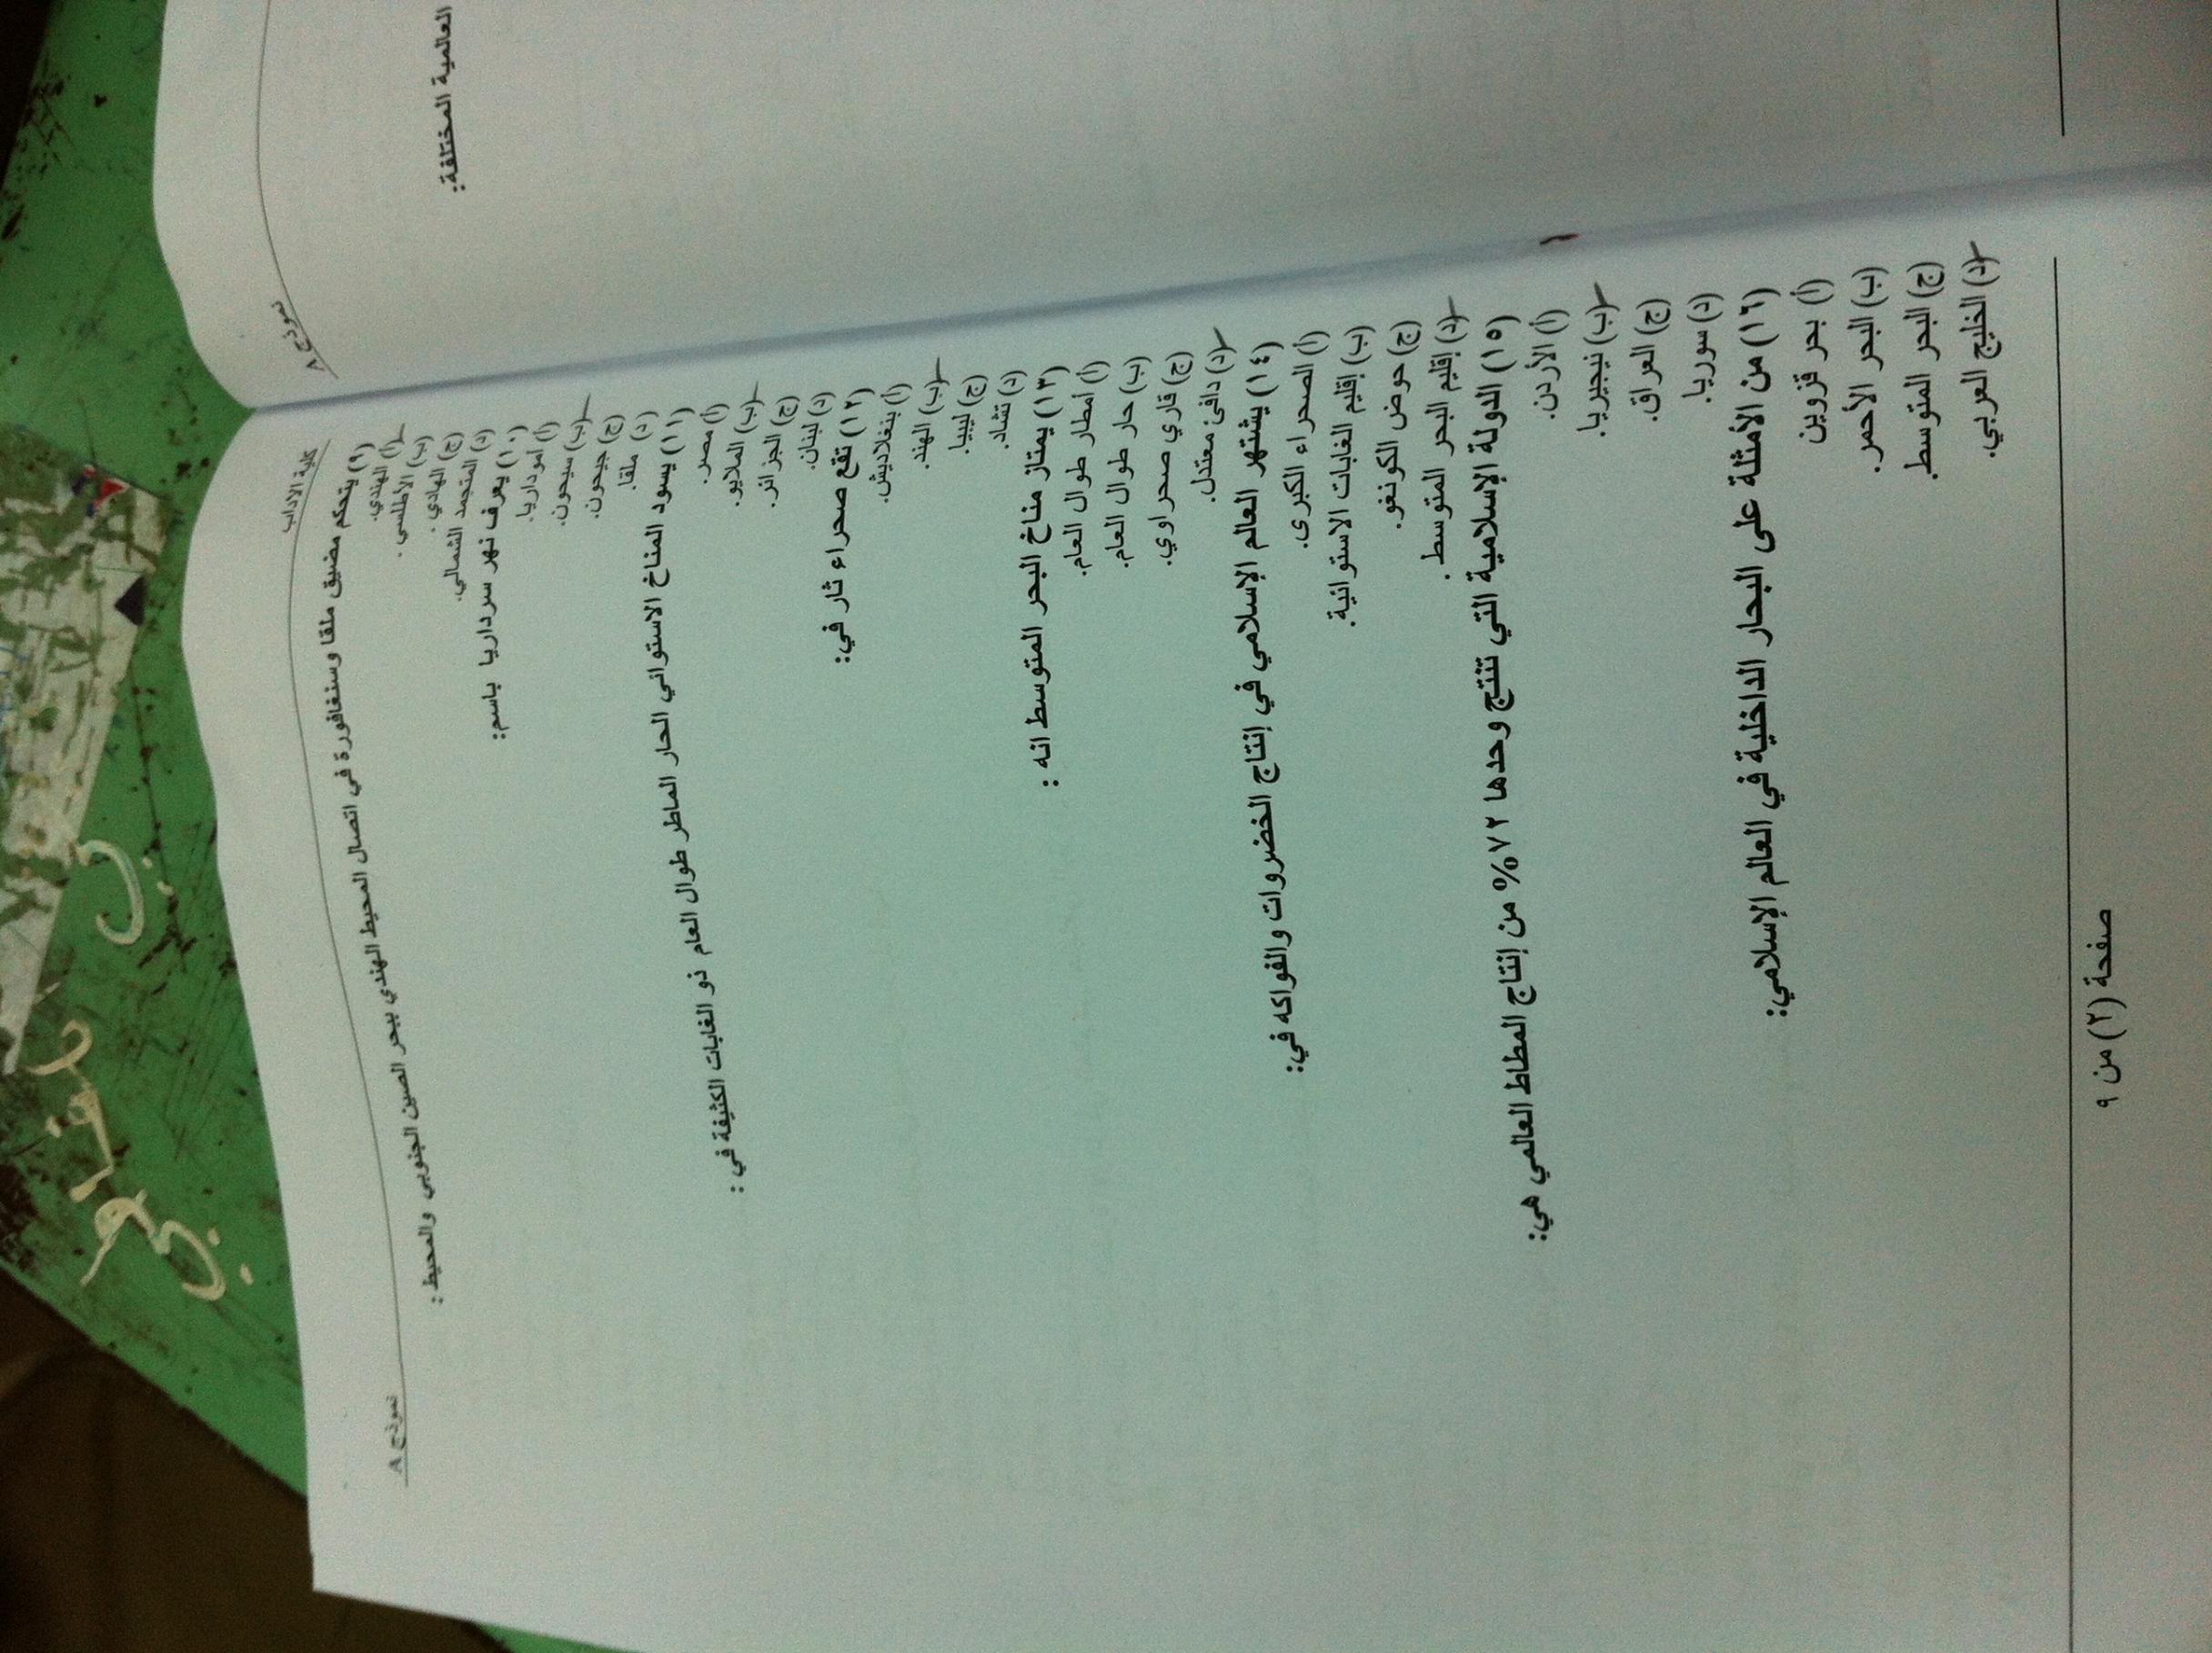 كلية الاداب
نموذج A
٩) يتحكم مضيق ملقا وسنغافورة في اتصال المحيط الهندي ببحر الصين الجنوبي والمحيط :
(أ) الهندي.
(ب) الأطلسي .
(ج) الهادي .
(د) المتجمد الشمالي.
١٠) يعرف نهر سرداريا باسم:
(أ) أموداريا.
(ب) سيحون.
(ج) جيحون.
(د) ملقا.
١١) يسود المناخ الاستوائي الحار الماطر طوال العام ذو الغابات الكثيفة في :
(أ) مصر.
(ب) الملايو.
(ج) الجزائر.
(د) لبنان.
١٢) تقع صحراء ثار في:
(أ) بنغلاديش.
(ب) الهند.
(ج) ليبيا.
(د) تشاد.
١٣) يمتاز مناخ البحر المتوسط انه :
(أ) أمطار طوال العام.
(ب) حار طوال العام.
(ج) قاري صحراوي.
(د) دافئ معتدل.
١٤) يشتهر العالم الإسلامي في إنتاج الخضروات والفواكه في:
(أ) الصحراء الكبرى.
(ب) إقليم الغابات الاستوائية.
(ج) حوض الكونغو.
(د) إقليم البحر المتوسط .
١٥) الدولة الإسلامية التي تنتج وحدها ٧٢% من إنتاج المطاط العالمي هي:
(أ) الأردن.
(ب) نيجيريا.
(ج) العراق.
(د) سوريا.
١٦) من الأمثلة على البحار الداخلية في العالم الإسلامي:
(أ) بحر قزوين
(ب) البحر الأحمر.
(ج) البحر المتوسط.
(د) الخليج العربي.
صفحة (٢) من ٩
نموذج A
العالمية المختلفة: